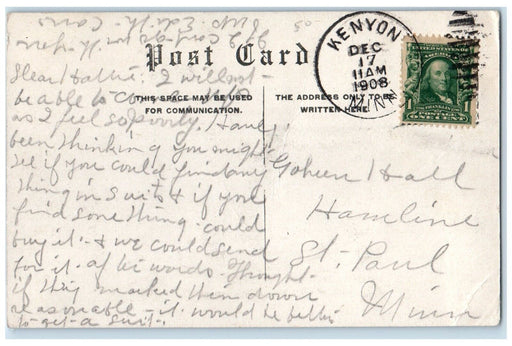 Post Card
THIS SPACE MAY BE USED
FOR COMMUNICATION.
THE ADDRESS ONLY TO BE
WRITTEN HERE
KENYON
DEC
17
11AM
1908
MINN
POSTAGE
ONE CENT
50
Dear Hattie: I will not
be able to come up
as I feel so poorly. Have
been thinking you might
see if you could find any
thing in suits & if you
find something could
buy it & we could send
for it. Thought
if they marked them down
reasonable - it would be better
to get a suit.
Hall
Hamline
St. Paul
Minn